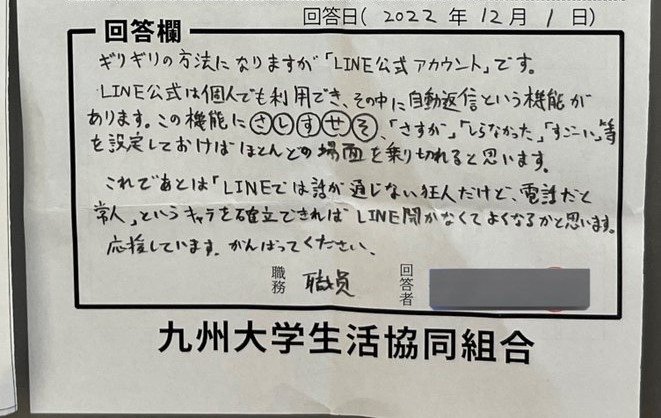 回答日( 2022 年 12 月 1 日)
回答欄
ギリギリの方法になりますが「LINE公式アカウント」です。
LINE公式は個人でも利用でき、その中に自動返信という機能が
あります。この機能にさしすせそ、「さすが」「しらなかった」「すごーい」等
を設定しておけばほとんどの場面を乗り切れると思います。
これであとは「LINEでは話が通じない狂人だけど、電話だと
常人」というキャラを確立できればLINE開かなくてよくなるかと思います。
応援しています。がんばってください。
職務 職員 回答者
九州大学生活協同組合